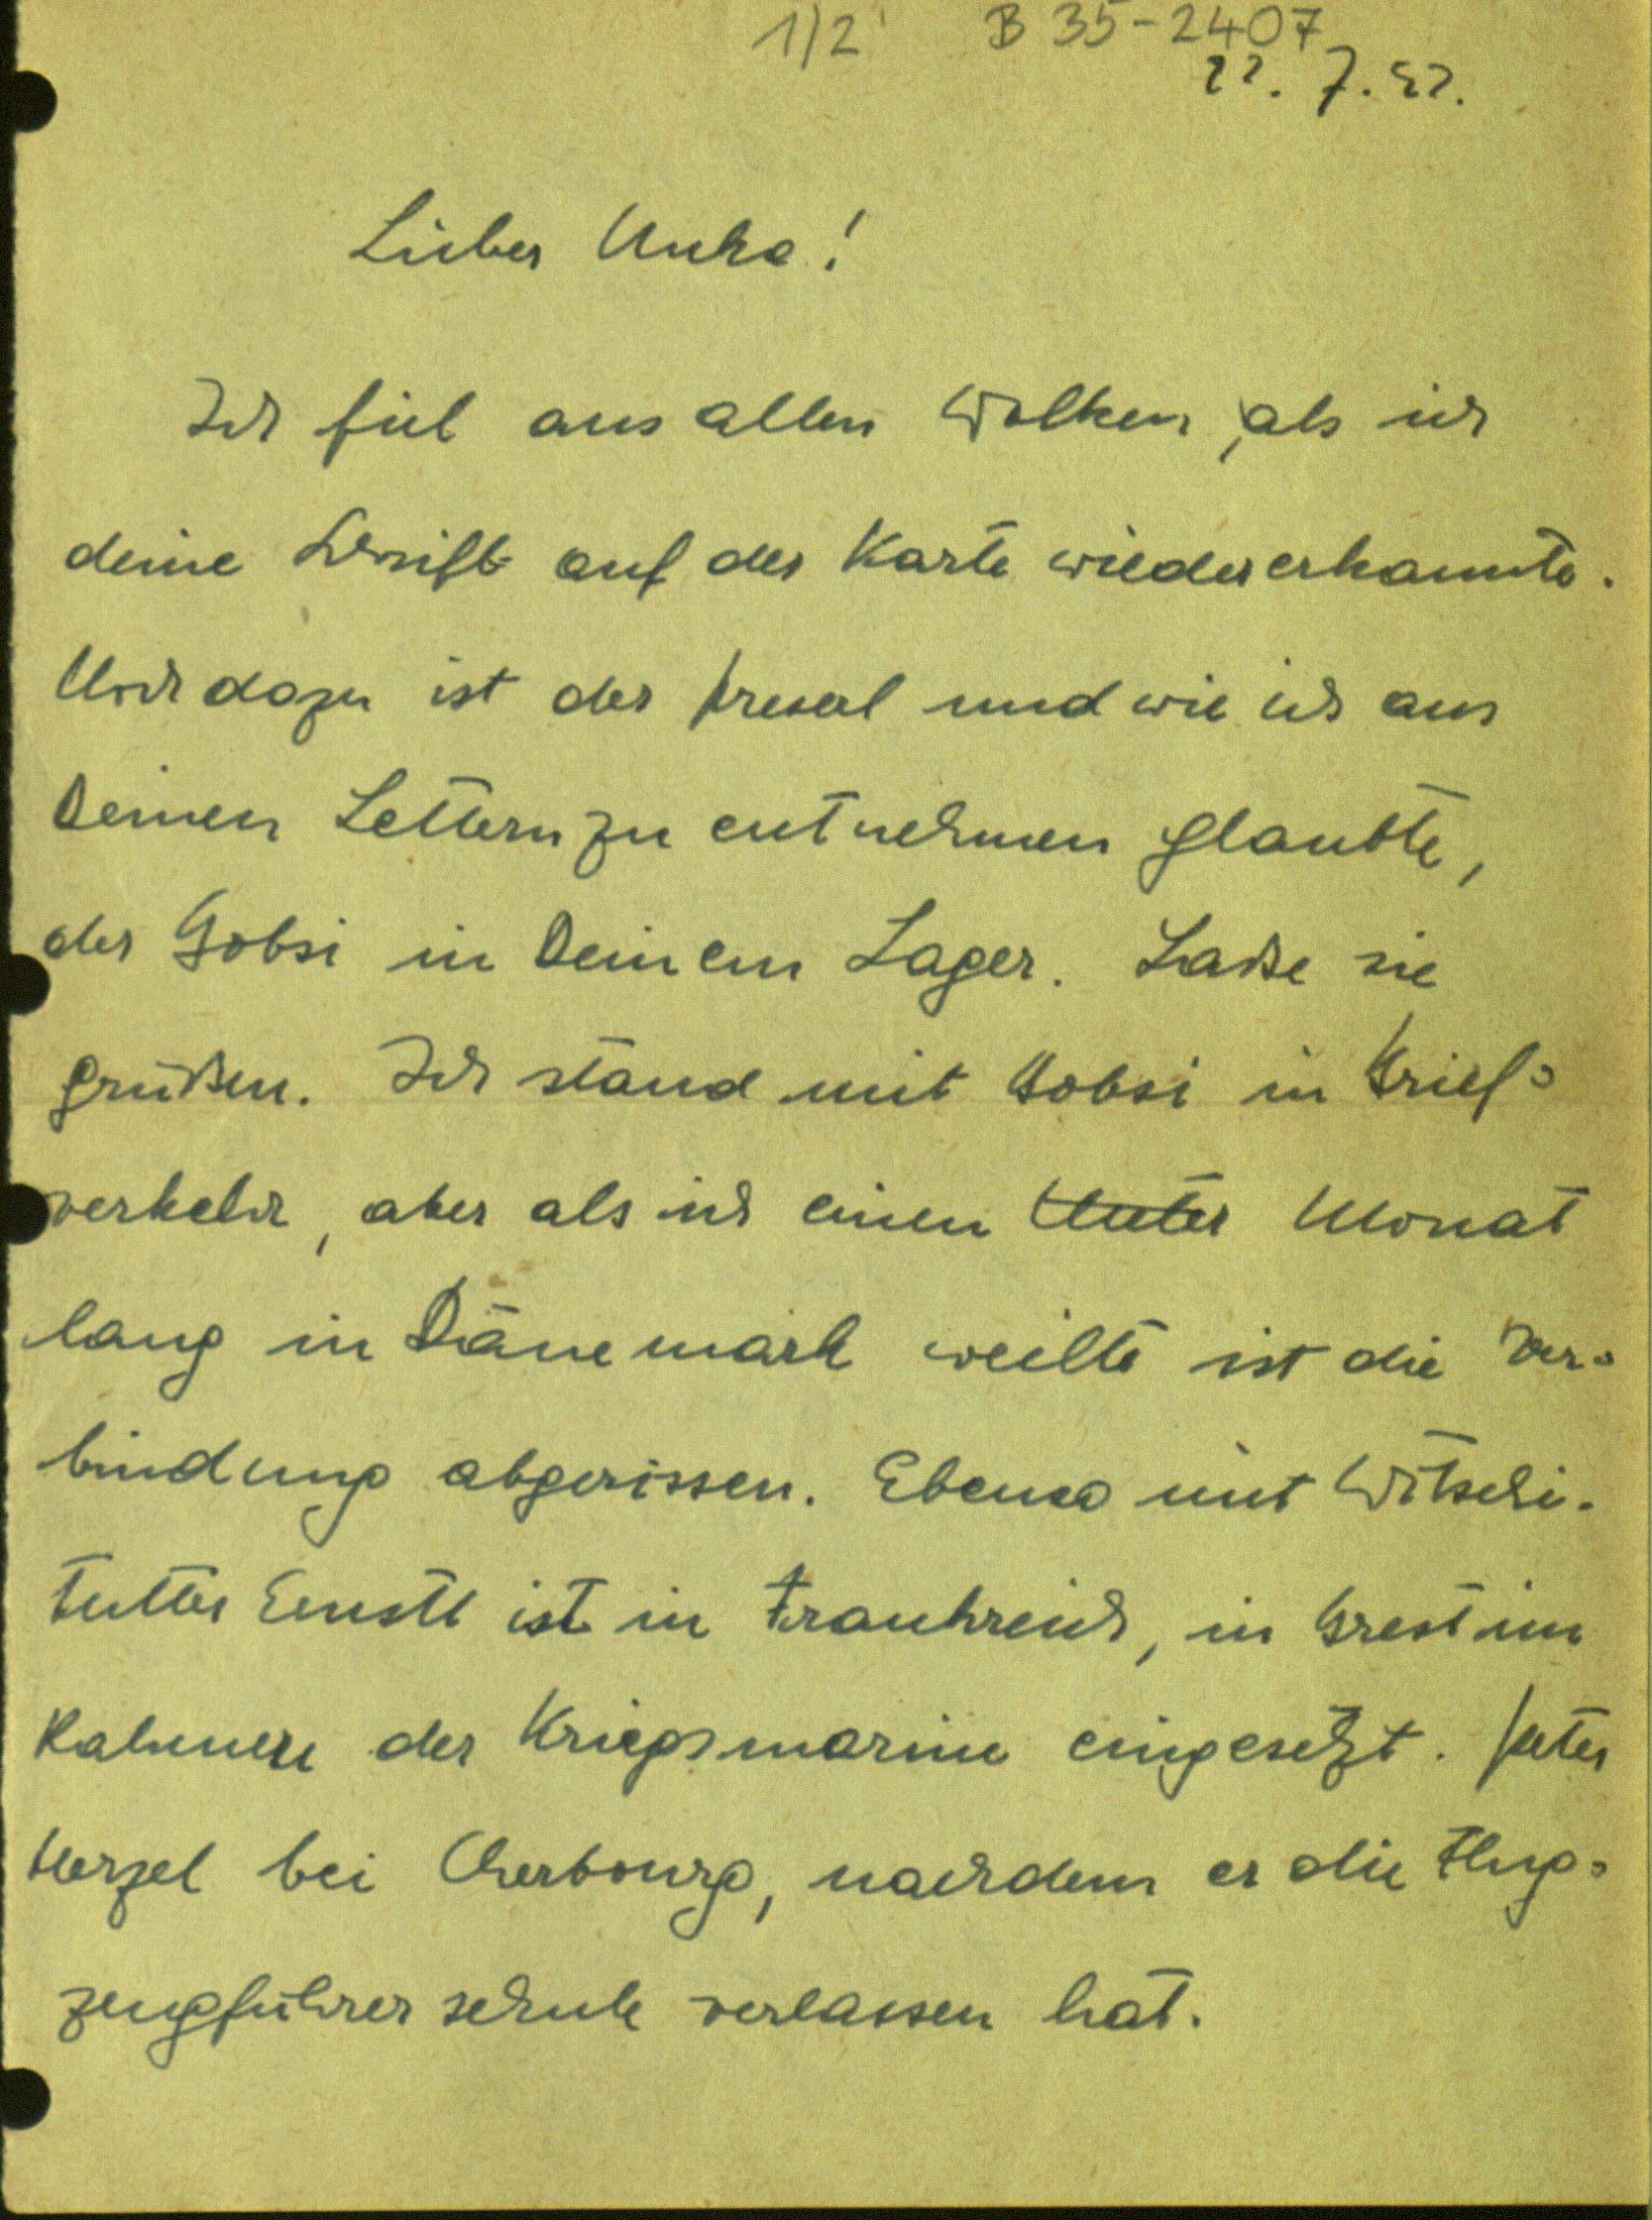 1/2 B 35-2407
22. 7. 42.
Lieber Unka!
Ich fiel aus allen Wolken, als ich
deine Schrift auf der Karte wiedererkannte.
Noch dazu ist der und wie ich aus
Deinen Lettern zu entnehmen glaubte,
der Bobsi in Deinem Lager. Laße sie
grüßen. Ich stand mit Bobsi in Brief=
verkehr, aber als ich einen Unter Monat
lang in Dänemark weilte ist die Ver=
bindung abgerissen. Ebenso mit Witschi.
Tutter Ernstl ist in Frankreich, in Brest im
Rahmen der Kriegsmarine eingesetzt. Peter
Herzel bei Cherbourg, nachdem er die Flug=
zeugführerschule verlassen hat.